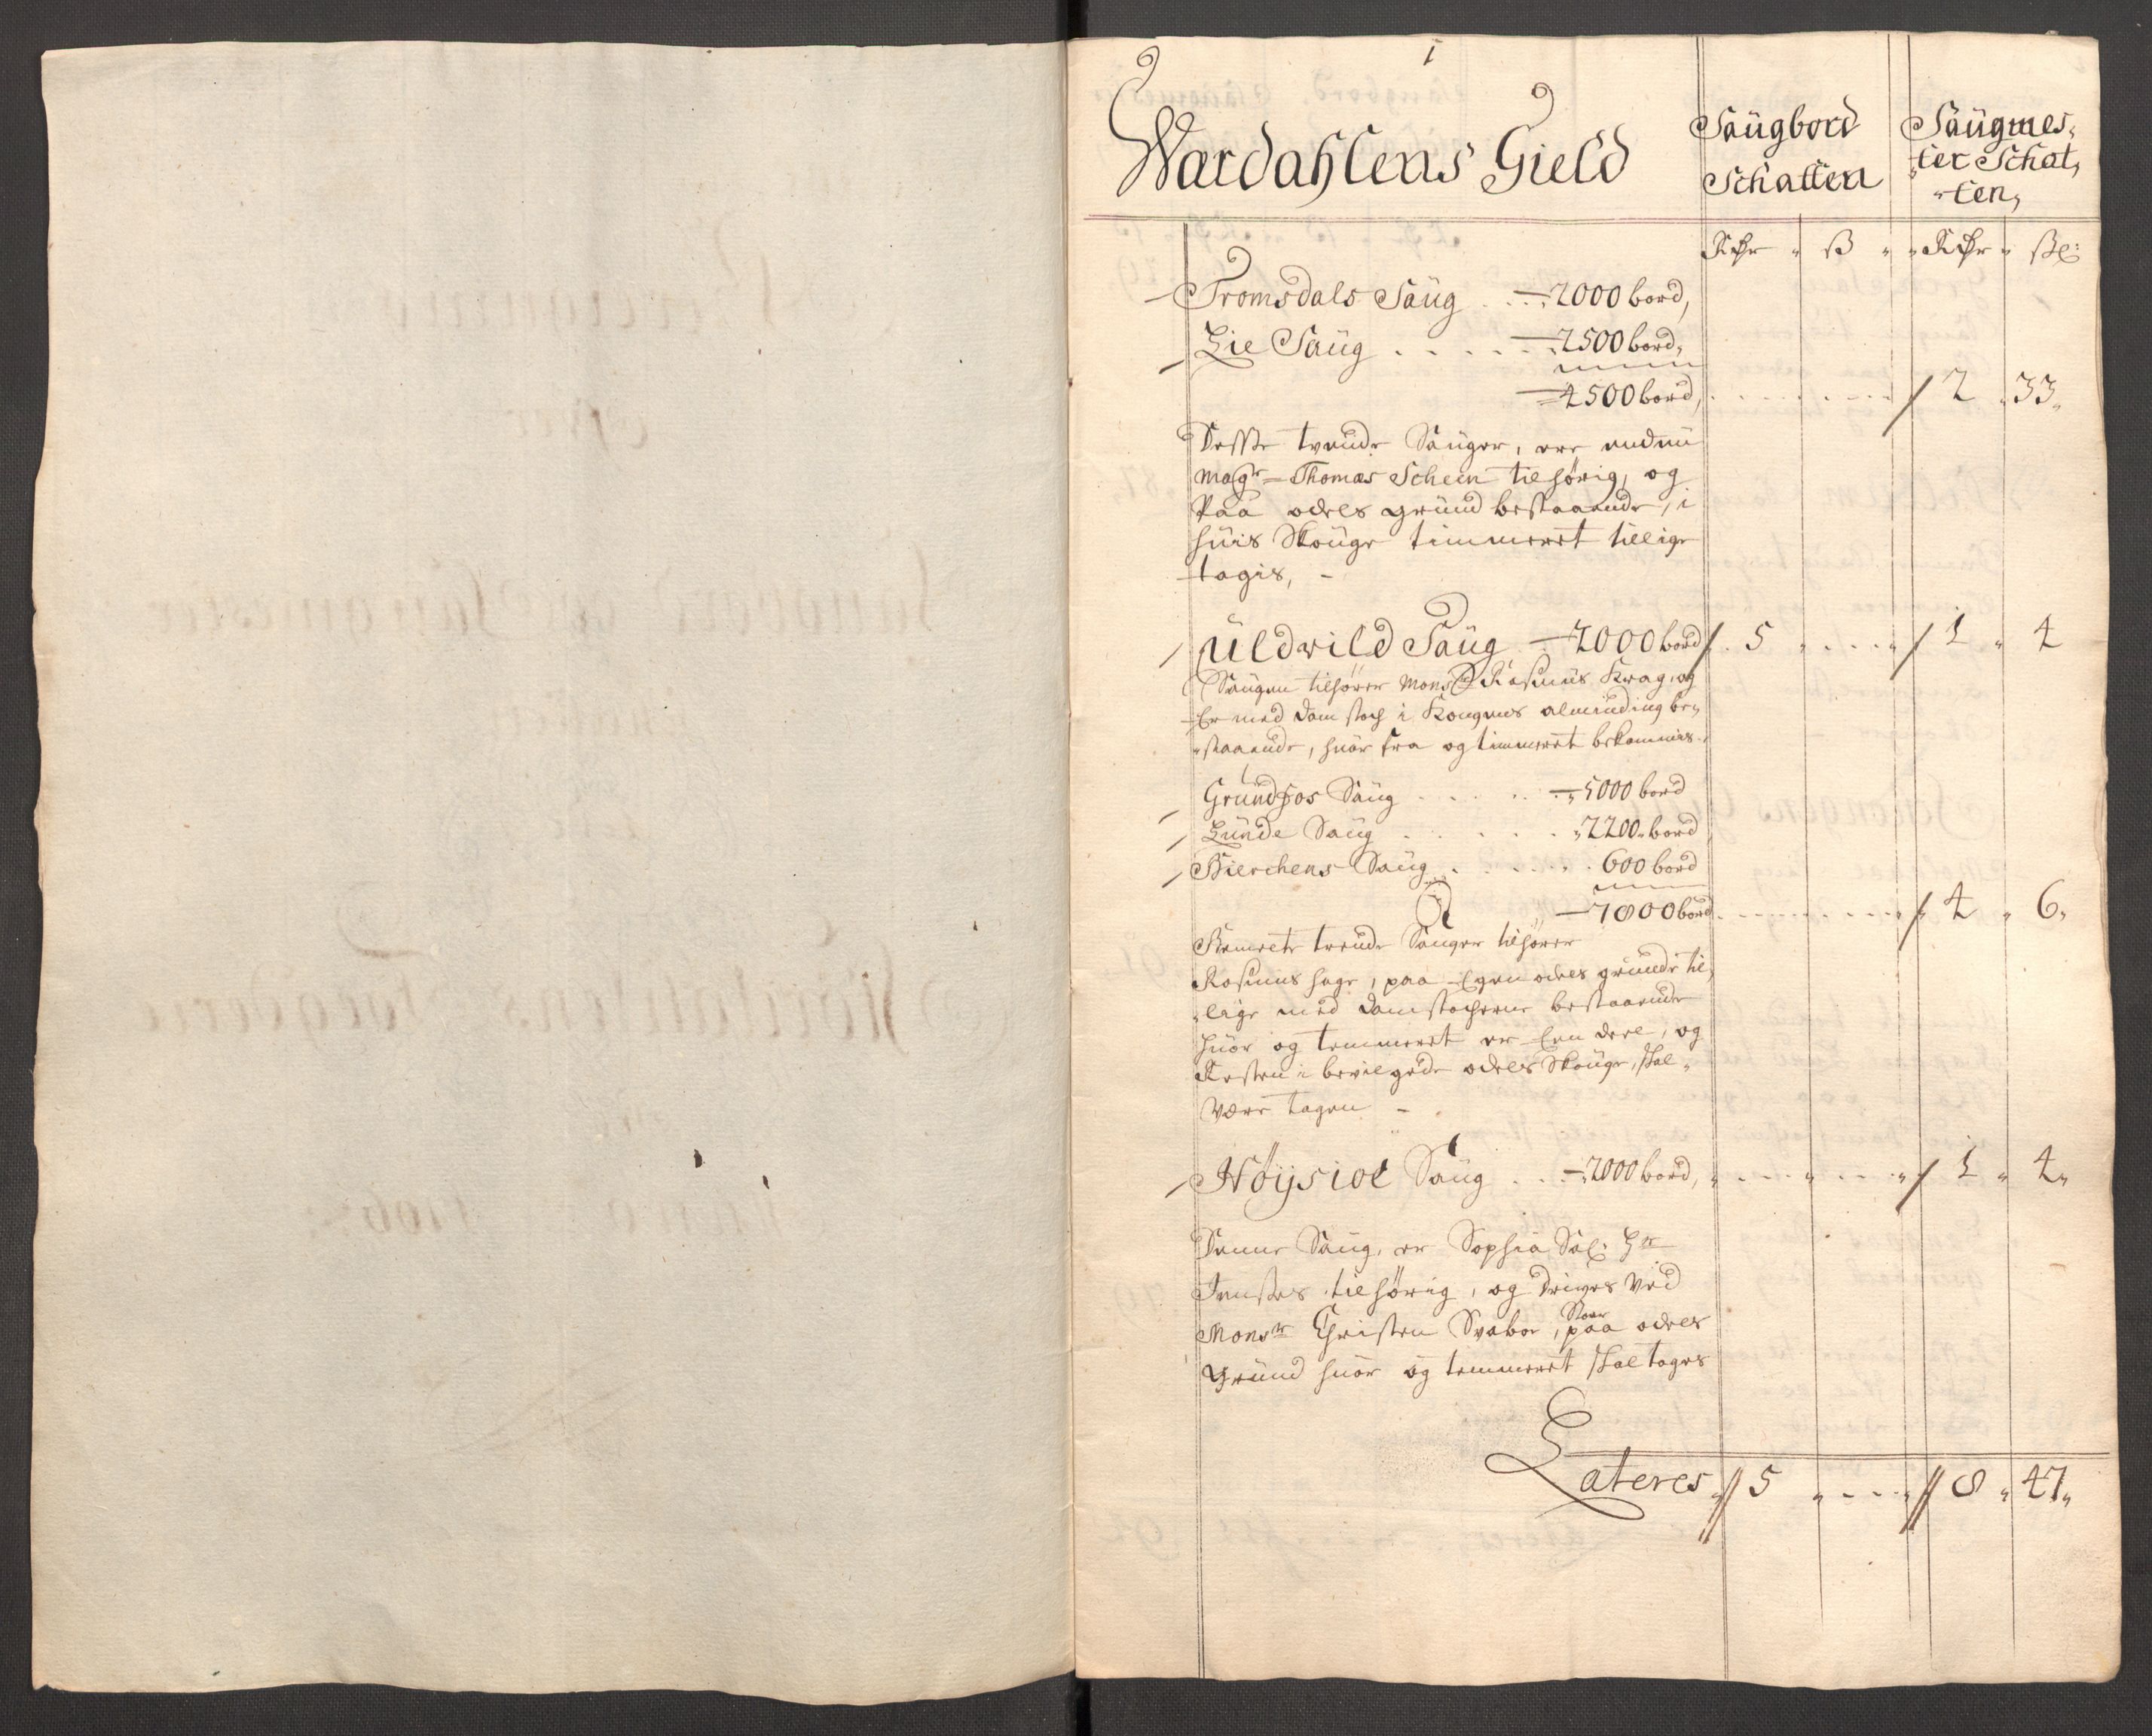 1
Wardahlens Gield
Saügbord Schatten
Saügmes,
ter Schat,
ten,
Rdr ß Rdr ßl:
Tromsdals Saüg 2000 bord,
Lie Saüg 2500 bord,
4500 bord, 2 33
Desse tvende Sauger, ere endnü
Magr Thomas Schein tilhörig, og
Paa odels gründ bestaaende, i
huis Skouge timmeret tillige
tagis,
Uldvild Saüg 2000 bord 5 1 4
Saugen tilhører Monsr Rasmus Krag, og
Er med dam stoch i Kongens alminding be,
staaende, huor fra og timmeret bekommis
Gründfos Saüg 5000 bord
Lünde Saüg 2200 bord
Bierchens Saüg 600 bord
7800 bord 4 6
tvende Sauger tilhører
Rasmus hage, paa Egen odels grunde til,
lige med damstocherne bestaaende
huor og temmeret er Een deel, og
Resten i bevilgede odels Skouge, skal
være tagen
Höysiöe Saüg 2000 bord, 1 4
Denne Saug, er Sophia Sal: Hr
Jenses tilhörig, og drives ved
Monsr Christen Svaboe, Staar
paa odels
Gründ huor og temmeret skal tages
Lateres 5 8 47